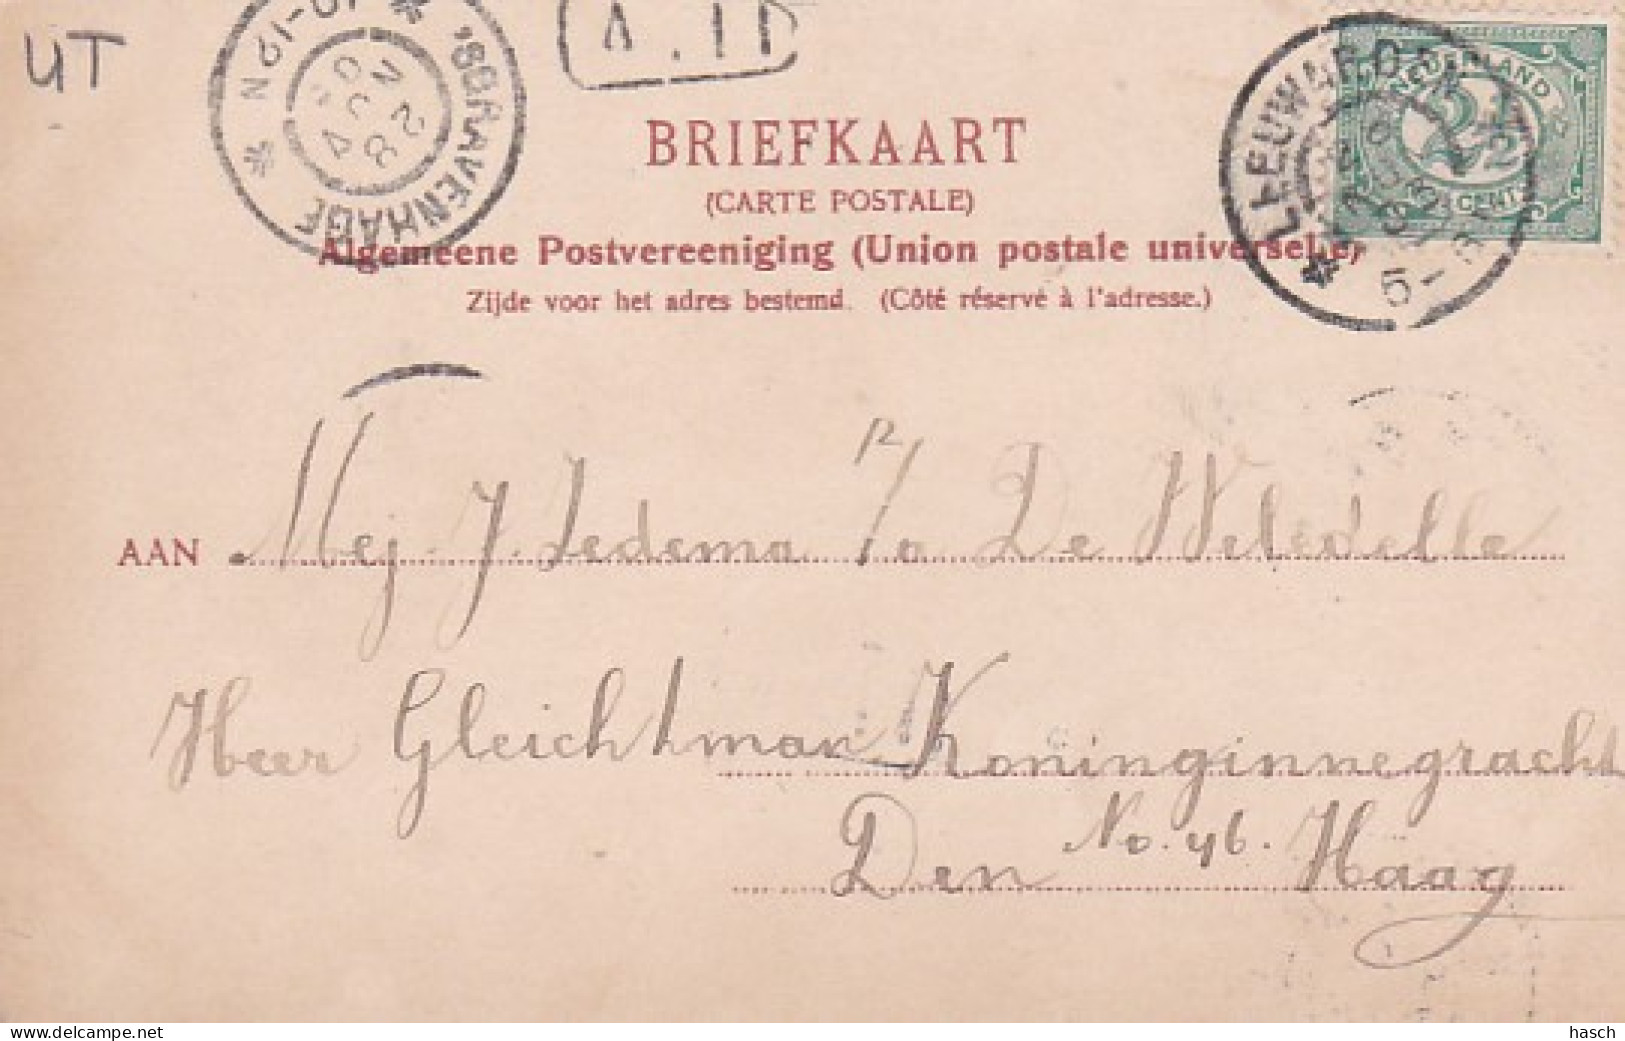 UT
'SGRAVENHAGE
10-12 N
LEEUWARDEN
5-
NEDERLAND
2½
CENT
BRIEFKAART
(CARTE POSTALE)
Algemeene Postvereeniging (Union postale universelle)
Zijde voor het adres bestemd. (Côté réservé à l'adresse.)
AAN Mej. J. Iedema p/a De Weledelle
Heer Gleichtman Koninginnegracht
No. 46.
Den Haag
hasch